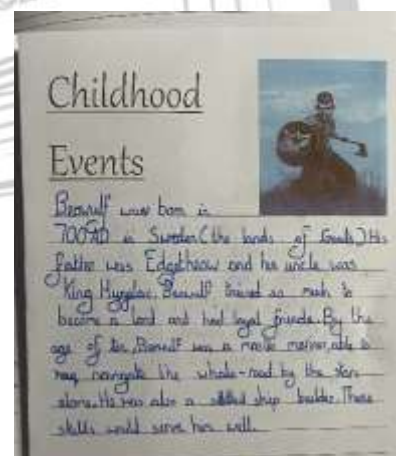 Childhood
Events
Beowulf was born in
700AD in Sweden (the lands of Geats) His
father was Edgetheow and his uncle was
King Hygelac. Beowulf trained so much to
become a lord and had loyal friends. By the
age of ten, Beowulf was a master mariner, able to
navigate the whale-road by the stars
alone. He was also a skilled ship builder. These
skills would serve him well.